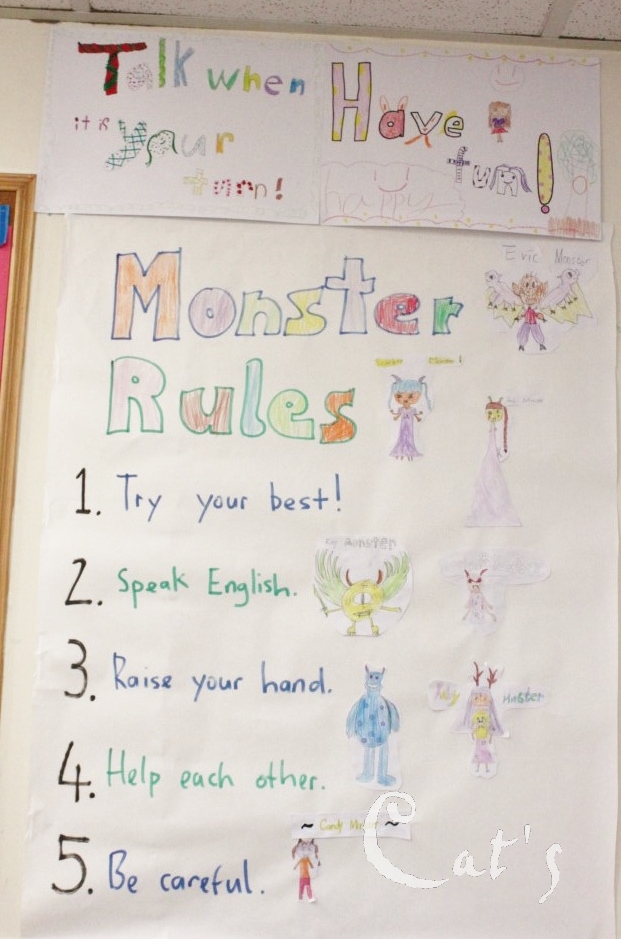 Talk when
it is
your
turn!
Have
fun!
happy
Monster
Rules
Eric Monster
1. Try your best!
2. Speak English.
Monster
3. Raise your hand.
Monster
4. Help each other.
~ Candy ~
5. Be careful.
Cat's